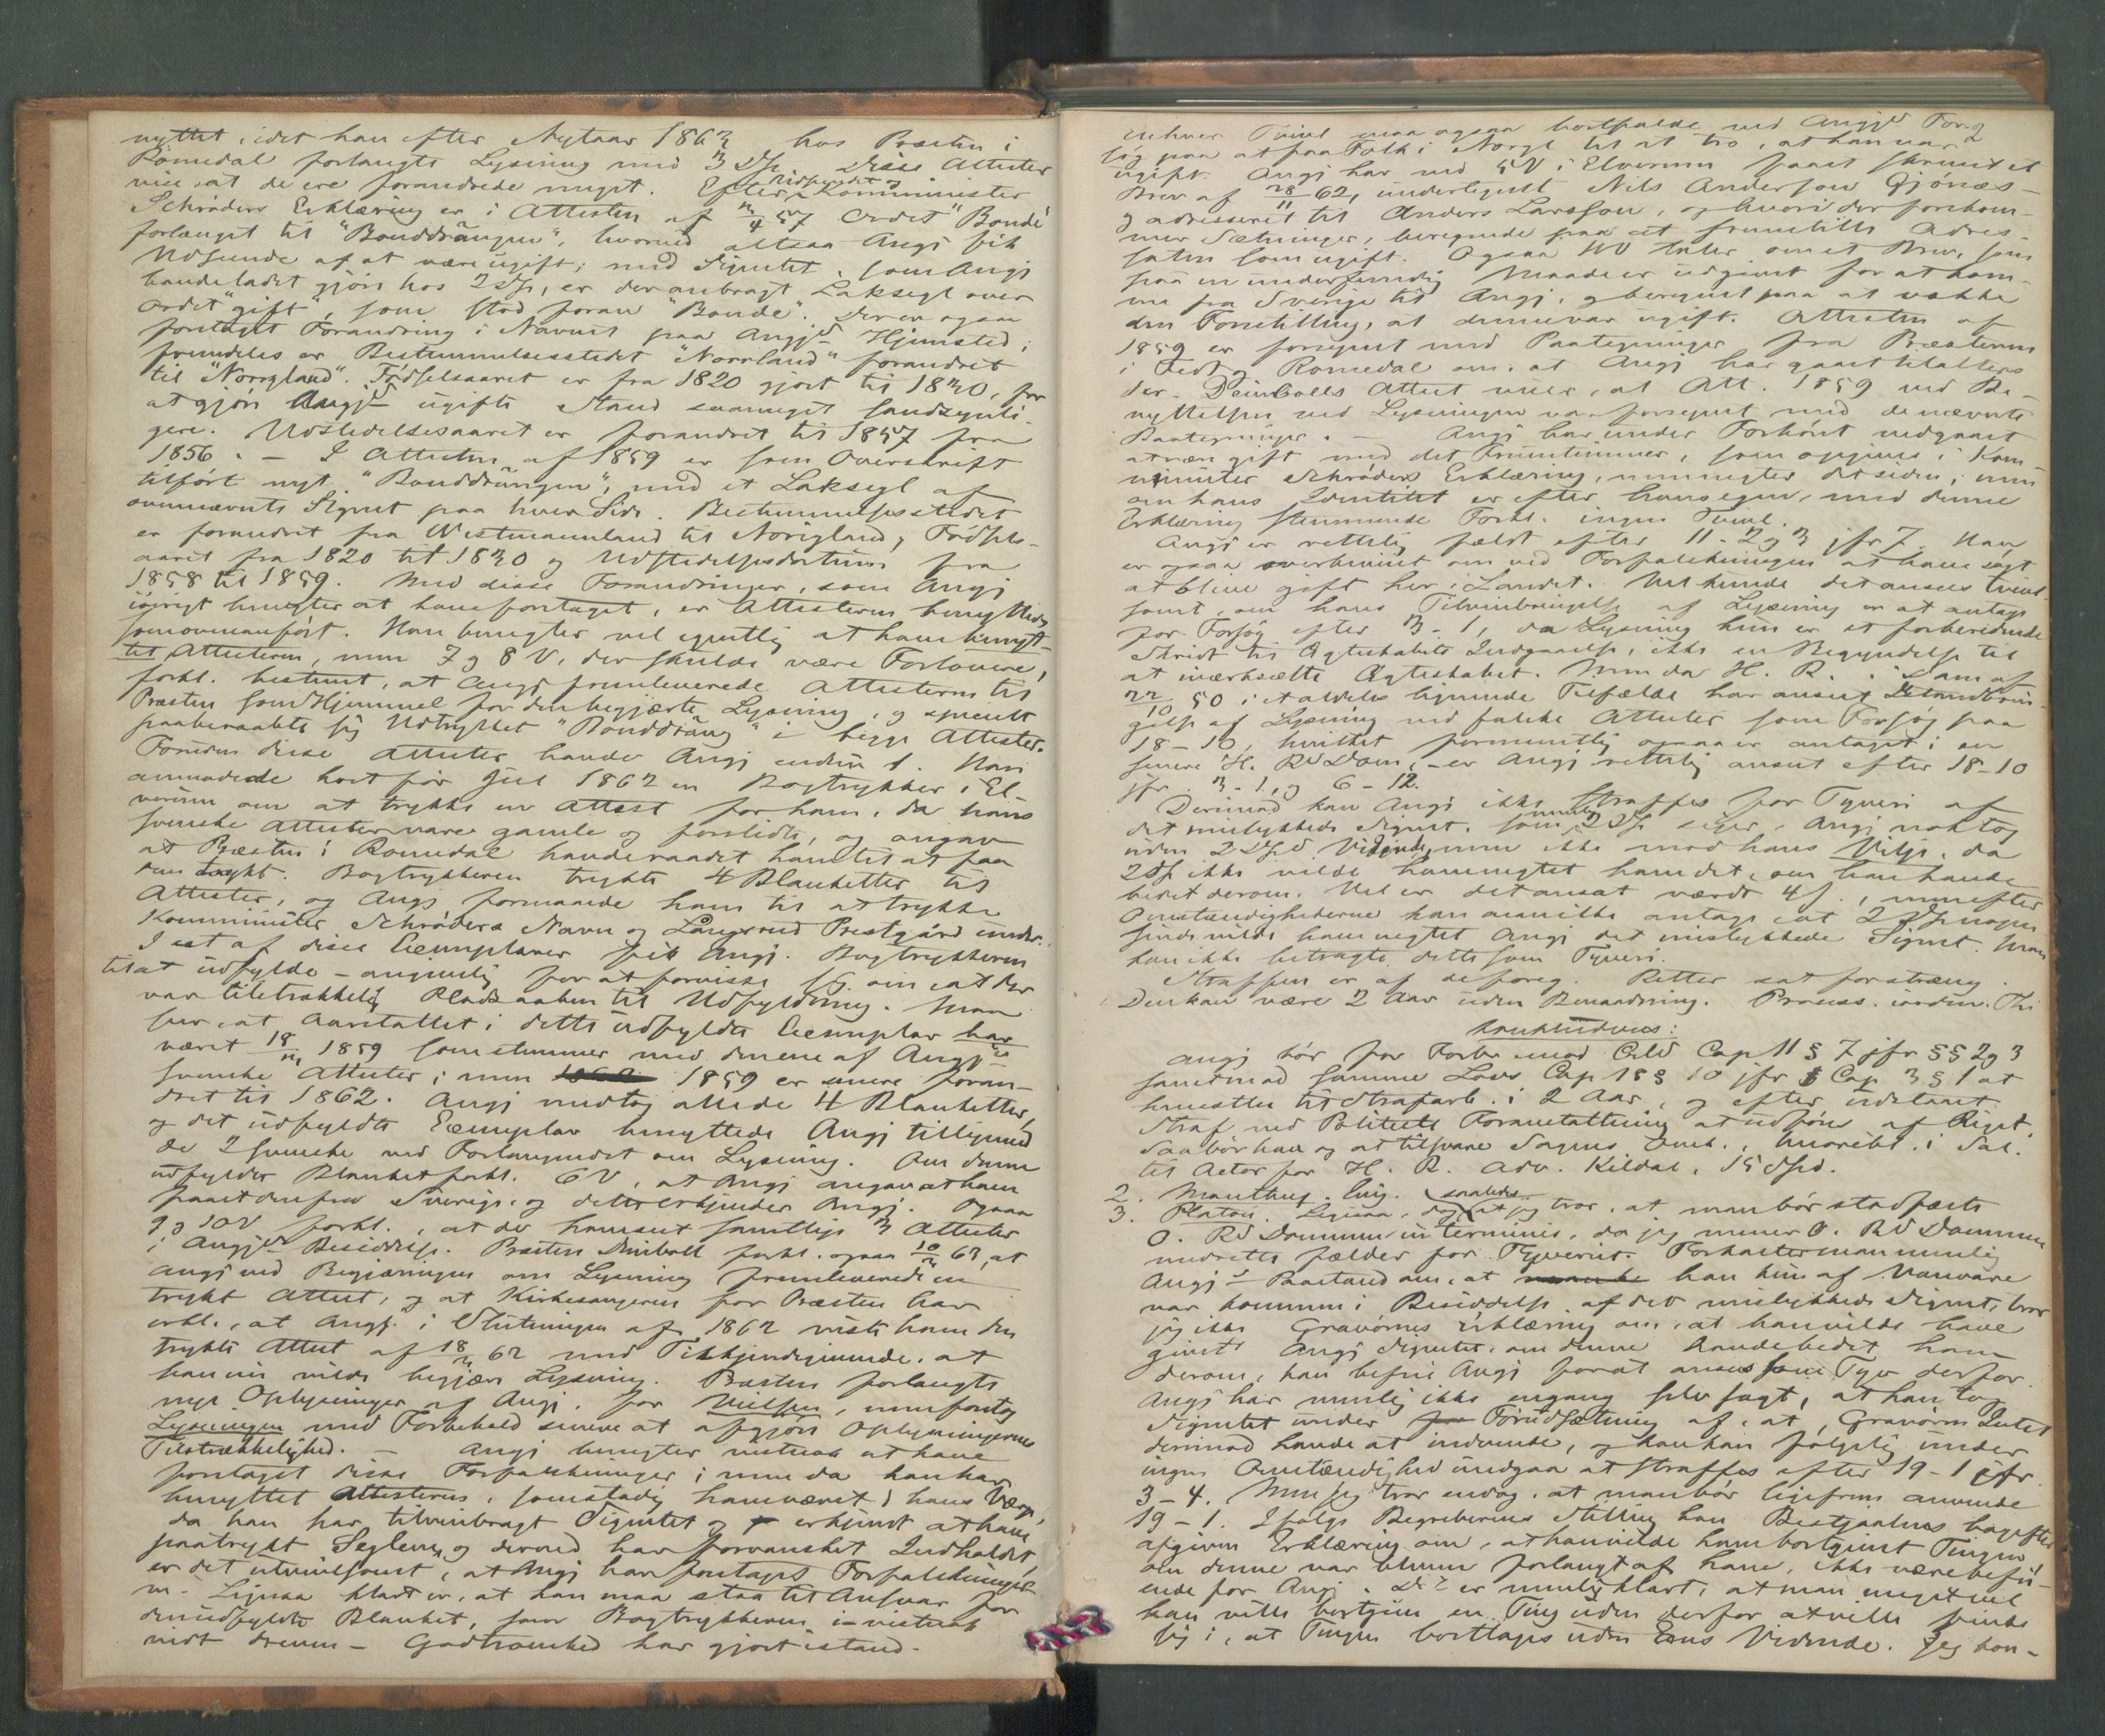 nyttet, idet han efter Nytaar 1863 hos Præsten i
Romedal forlangte Lysning med 3 Disse Attester
vise, at de ere forandrede meget. Efter Kommminister
Schröders Erklæring er i Attesten af 3/4 57 Ordet "Bonde"
forlænget til "Bonddrängen", hvorved altsaa Angj fik
Udseende af at være ugift; med Signetet, som Angj
havde ladet gjöre hos 2 , er der anbragt Laksegl over
Ordet "gift", som stod foran "Bonde". Der er ogsaa
foretaget Forandring i Navnet paa Angjs Hjemsted;
fremdeles er Bestemmelsesstedet "Norrland" forandret
til "Norrgland". Födselsaaret er fra 1820 gjort til 1830, for
at gjöre Angjs ugifte Stand saameget sandsynli-
gere. Udstedelsesaaret er forandret til 1857 fra
1856. – I Attesten af 1859 er som Overskrift
tilfört nyt "Bonddrängen", med et Laksegl af
ovennævnte Signet paa hver Side. Bestemmelsesstedet
er forandret fra Westmannland til Norigland, Födsels-
aaret fra 1820 til 1830 og Udstedelsesdatum fra
1858 til 1859. Med disse Forandringer, som Angj
iövrigt benegter at have foretaget, er Attesterne benyttede
som ovenanfört. Han benegter vel egentlig at have benyt-
tet Attesterne, men 7 og 8 V, der skulde være Forlovere,
forkl. bestemt, at Angj fremleverede Attesterne til
Præsten som Hjemmel for den begjærte Lysning, og specielt
paaberaabte sig Udtrykket "Bonddräng" i begge Attester.
Foruden disse Attester havde Angj endnu 1. Han
anmodede kort för Jul 1862 en Bogtrykker i El-
verum om at trykke en Attest for ham, da hans
svenske Attester vare gamle og forslidte, og angav
at Præsten i Romedal havde raadet ham til at faa
den trykt. Bogtrykkeren trykte 4 Blanketter til
Attester, og Angj formaaede ham til at trykke
Kommminister Schröders Navn og Långserud Prestgård under.
I et af disse Exemplarer fik Angj. Bogtrykkeren
til at udfylde – angivelig for at forvisse sig om, at der
var tilstrækkelig Plads aaben til Udfyldning. Man
ser, at Aarstallet i dette udfyldte Exemplar har
været 18/3 1859 som stemmer med denene af Angjs
svenske Attester; men 1859 er senere foran-
dret til 1862. Angj modtog allede 4 Blanketter,
og det udfyldte Exemplar benyttede Angj tilligemed
de 2 svenske ved Forlangendet om Lysning. Om denne
udfyldte Blanket forkl. 6 V, at Angj angav at have
faaet den fra Sverige, og dette erkjender Angj. Ogsaa
9 og 10 V forkl., at der har været samtlige 3 Attester
i Angjs Besiddelse. Præsten Deinboll forkl. ogsaa 10/3 63, at
Angj ved Begjæringen om Lysning fremleverede en
trykt Attest, og at Kirkesangeren for Præsten har
erkl., at Angj. i Slutningen af 1862 viste ham den
trykte Attest af 18/3 62 med Tilkjendegivende, at
han nu vilde begjære Lysning. Præsten forlangte
nye Oplysninger af Angj. for Vielsen, men foretog
Lysningen med Forbehold senere at afgjöre Oplysningernes
Tilstrækkelighed. – Angj benegter vistnok at have
foretaget disse Forfalskninger; men da han har
benyttet Attesterne, som stadig have været i hans Værge,
da han har tilveiebragt Signetet og erkjendt at have
paatrykt Seglene, og derved har forvansket Indholdet,
er det utvivlsomt, at Angj har foretaget Forfalskninger-
ne. Ligesaa klart er, at han maa staa til Ansvar for
den udfyldte Blanket, som Bogtrykkeren i – vistnok
vidt dreven – Godtroenhed har gjort istand.
enhver Tvivl maa ogsaa bortfalde ved Angjs Forsög
sög paa at faa Folk i Norge til at tro, at han var
ugift. Angj har ved 5 V i Elverum faaet skrevet et
Brev af 28/11 62, undertegnet Nils Andersson Gjönæs
og adresseret til Anders Larsson, og hvori der forekom-
mer Sætninger, beregnede paa at fremstille Adres-
saten som ugift. Ogsaa 10 V taler om et Brev, som
paa en underfundig Maade er udgivet for at kom-
me fra Sverige til Angj, og beregnet paa at vække
den Forestilling, at denne var ugift. Attesten af
1859 er forsynet med Paategninger fra Præsterne
i og Romedal om, at Angj har gaaet til alters
der. Deinbolls Attest viser, at Att. 1859 ved Be-
nyttelsen ved Lysningen var forsynet med de nævnte
Paategninger. – Angj har under Forhöret vedgaaet
at være gift med det Fruentimmer, som opgives i Kom-
minister Schröders Erklæring, men negter det siden; men
om hans Identitet er efter hans egen, med denne
Erklæring stemmende Forkl. ingen Tvivl.
Angj er rettelig fældt efter 11-2 og 3 jfr 7. Han
er ogsaa overbeviist om ved Forfalskningen at have sögt
at blive gift her i Landet. Vel kunde det ansees tvivl-
somt, om hans Tilveiebringelse af Lysning er at antage
for Forsög efter 3-1, da Lysning kun er et forberedende
Skridt til Ægteskabets Indgaaelse, ikke en Begyndelse til
at iværksætte Ægteskabet. Men da H. R. i Dom af
22/10 50 i et aldeles lignende Tilfælde har anseet Istandbrin-
gelse af Lysning ved falske Attester som Forsög paa
18-10, hvilket formentlig ogsaa er antaget i en
senere H. Rs Dom, – er Angj rettelig anseet efter 18-10
jfr 3-1, og 6-12.
Derimod kan Angj ikke straffes for Tyveri af
det mislykkede Signet, som 2 siger, Angj nok tog
uden 2 Vidende, men ikke mod hans Vilje, da
2 ikke vilde have negtet ham det, om han havde
bedet derom. Vel er det ansat værdt 4 , men efter
Omstændighederne kan man ikke antage, at 2
sinde vilde have negtet Angj det mislykkede Signet. Man
kan ikke betragte dette som Tyveri.
Straffen er af de foreg. Retter sat for streng.
Den kan være 2 Aar uden Benaadning. Process. Thi
konkluderes:
Angj bör for Forbr. mod Crld Cap 11 § 7 jfr §§ 2 og 3
samt mod samme Lovs Cap 18 § 10 jfr Cap 3 § 1 at
hensættes til Strafarb. i 2 Aar, og efter udstaaet
Straf ved Politiets Foranstaltning at udföres af Riget.
Saa bör han og at tilsvare Sagens Omk., hvoribl. i Sal.
til Actor for H. R. Adv. Kildal, 15 Spd.
2. Manthey. Enig.
3. Platou. Ligesaa, dog saaledes at jeg tror, at man bör stadfæste
O. Rs Dommen in terminis, da jeg mener O. Rs Dommen
medrette fælder for Tyveriet. Forkaster man nemlig
Angjs Paastand om, at han kun af Vanvare
var kommen i Besiddelse af det mislykkede Signet, tror
jeg ikke Gravörens Erklæring om, at han vilde have
givet Angj Signetet, om denne havde bedet ham
derom, kan befrie Angj for at ansees som Tyv derfor.
Angj har nemlig ikke engang selv sagt, at han tog
Signetet under Forudsætning af, at Gravören Intet
derimod havde at indvende, og han kan fölgelig under
ingen Omstændighed undgaa at straffes efter 19-1 jfr
3-4. Men jeg tror endog, at man bör ligefrem anvende
19-1. Ifölge Begrebernes Stilling kan Bestjaalnes bagefter
afgiven Erklæring om, at han vilde have bortgivet Tingen,
om denne var bleven forlangt af ham, ikke være befri-
ende for Angj. Det er nemlig klart, at man meget vel
kan ville bortgive en Ting uden derfor at ville finde
sig i, at Tingen borttages uden Ens Vidende. Jeg kon-